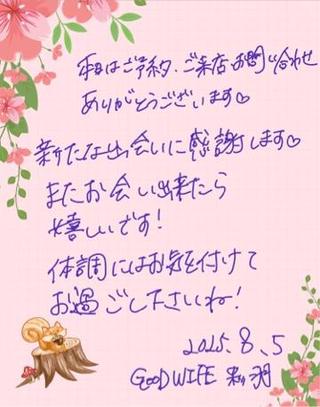 本日はご予約、ご来店、お問い合わせ
ありがとうございます♡
新たな出会いに感謝します♡
またお会い出来たら
嬉しいです！
体調にはお気を付けて
お過ごし下さいね！
2025.8.5
GOODWIFE